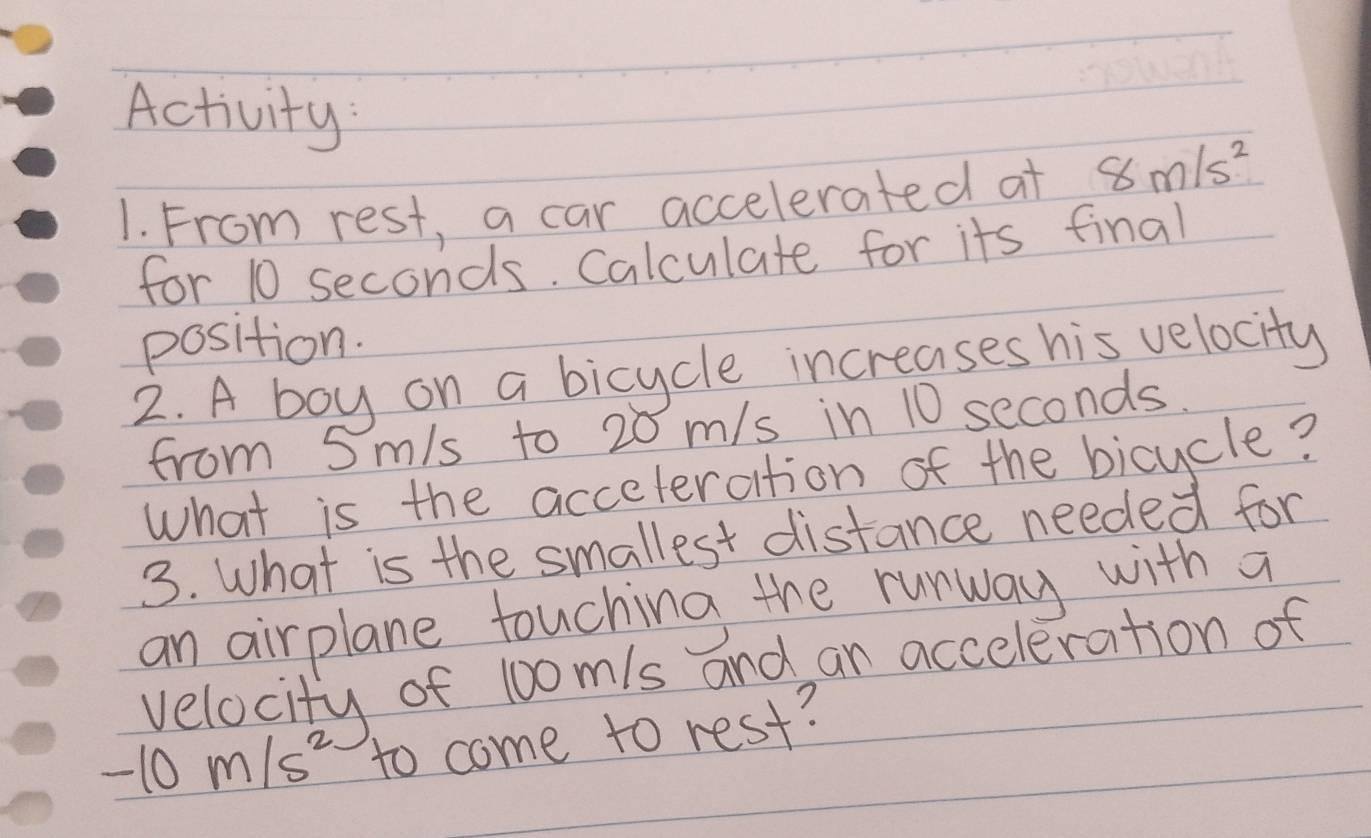 Activity:
1. From rest, a car accelerated at 8 m/s²
for 10 seconds. Calculate for its final
position.
2. A boy on a bicycle increases his velocity
from 5 m/s to 20 m/s in 10 seconds.
What is the acceleration of the bicycle?
3. What is the smallest distance needed for
an airplane touching the runway with a
velocity of 100 m/s and an acceleration of
-10 m/s² to come to rest?